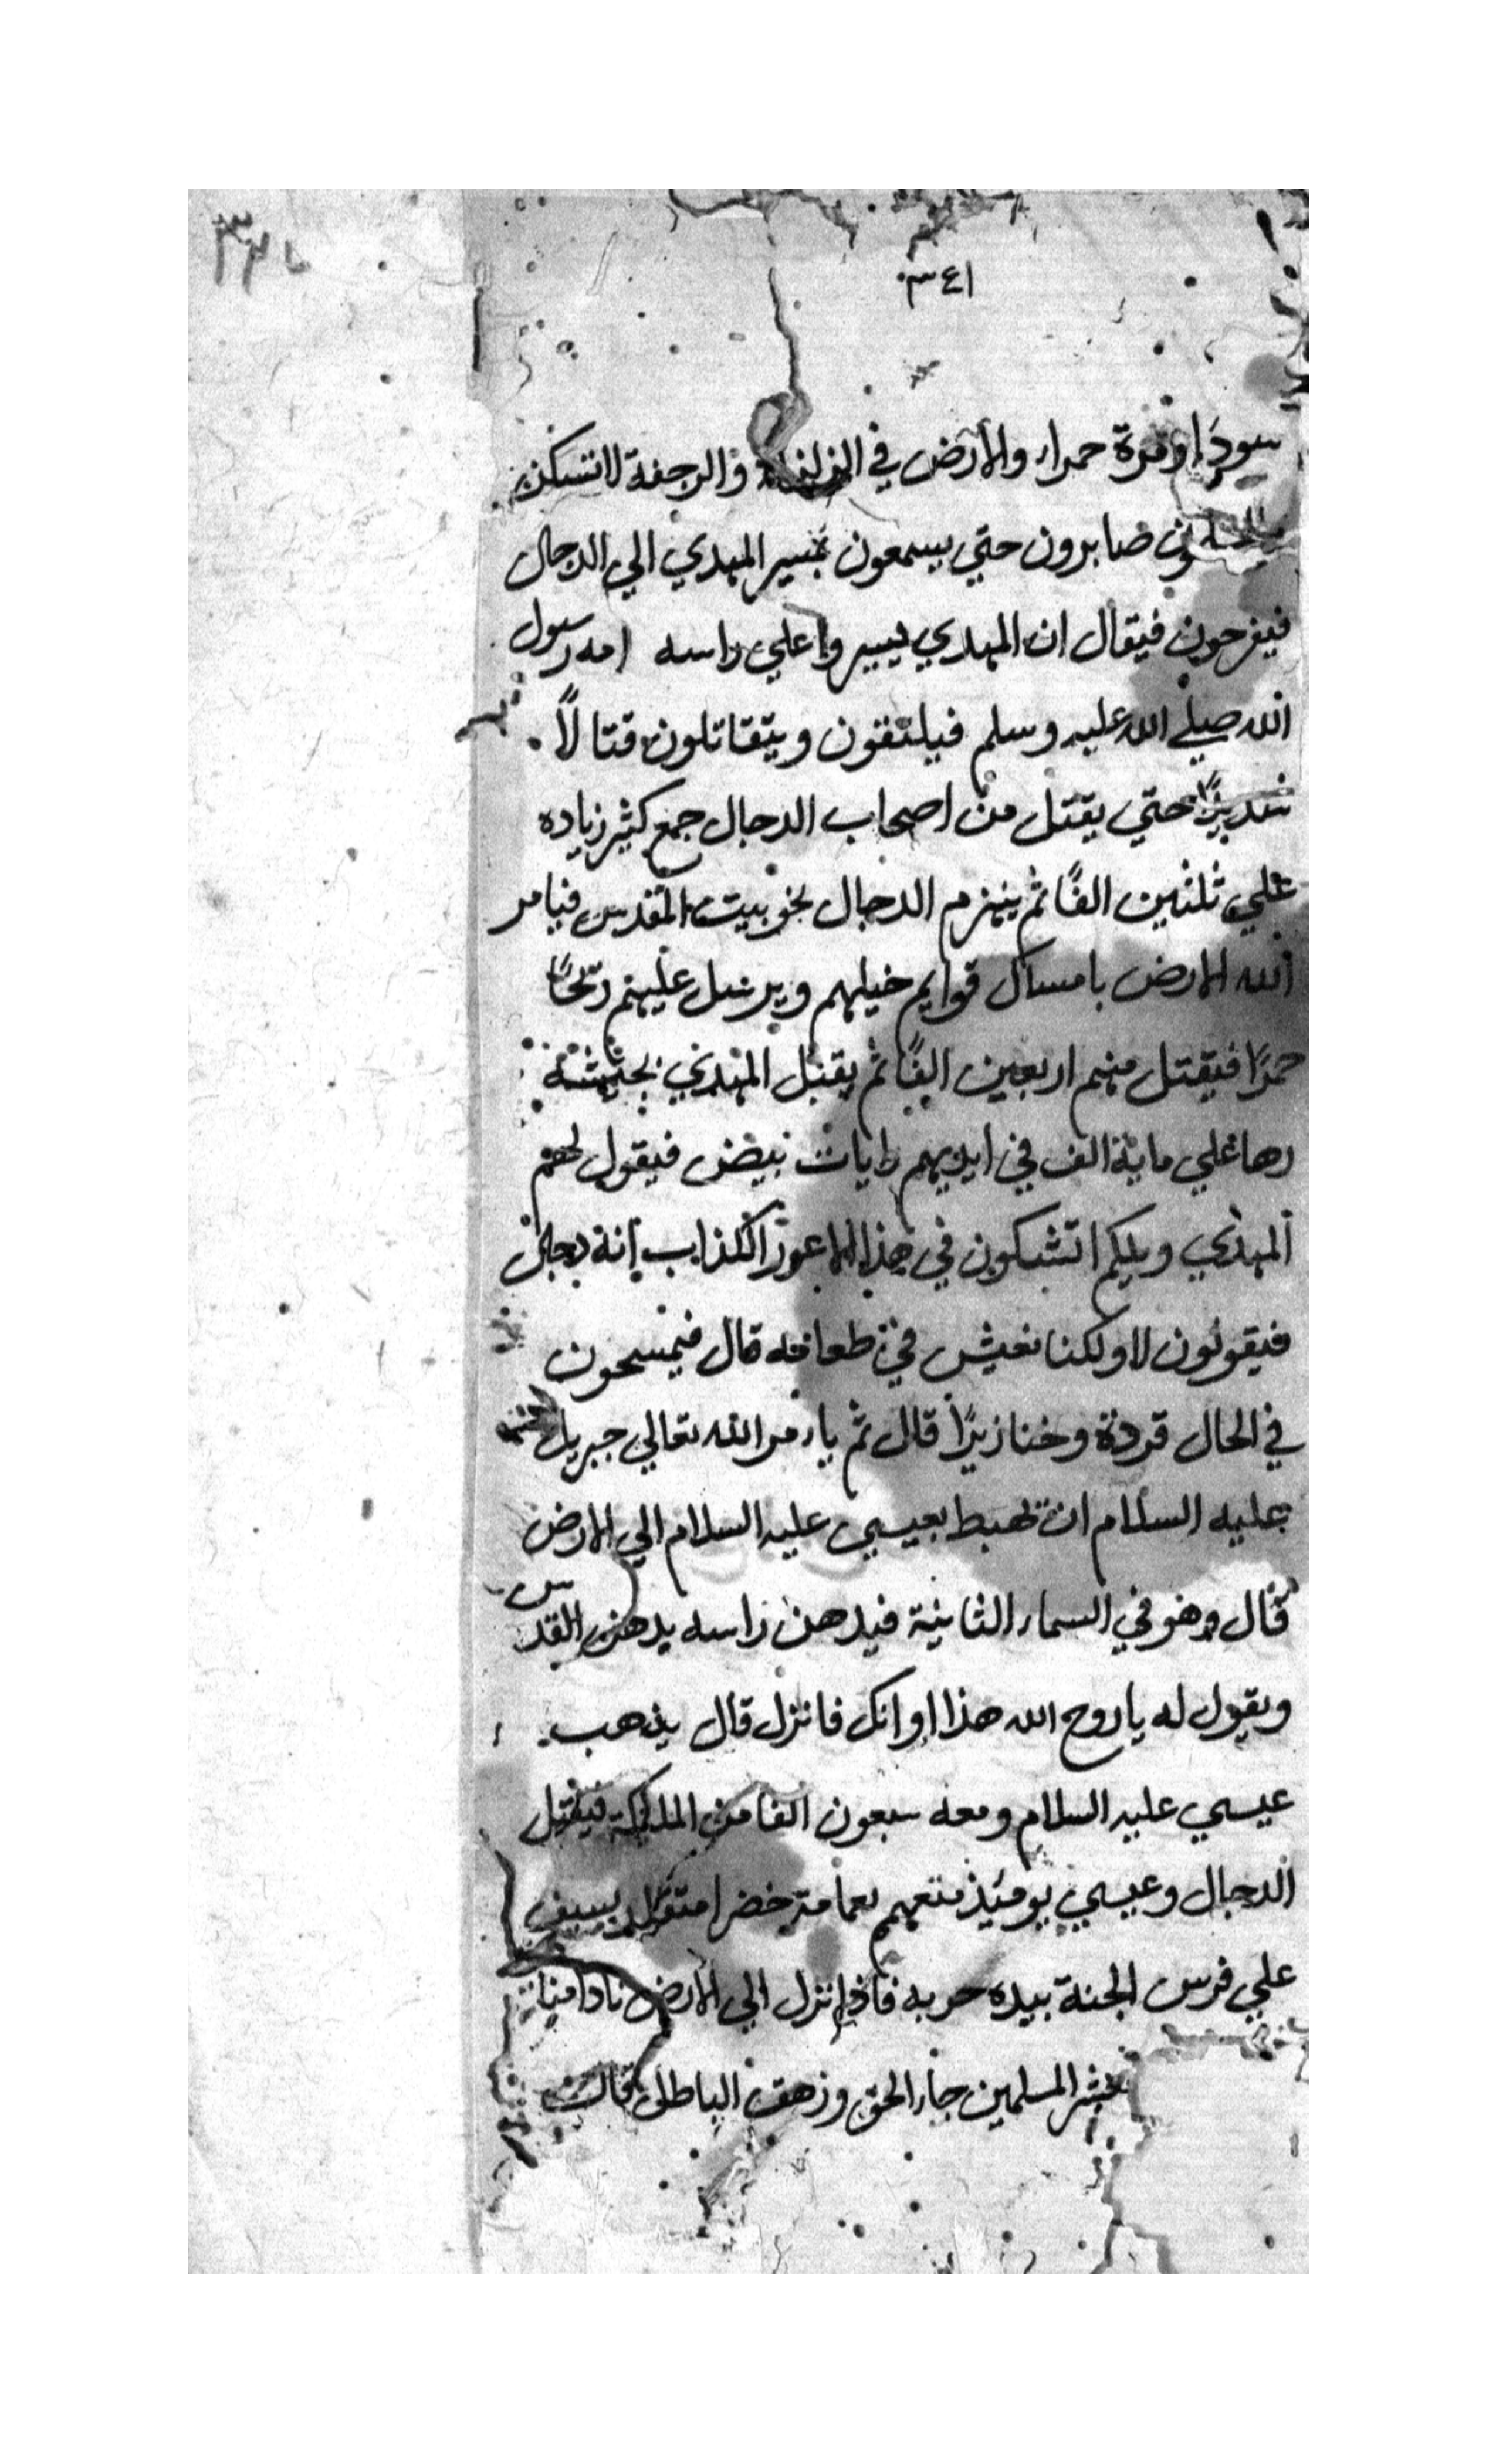 ٣٤١
سودا ومرة حمراء والأرض في الزلزلة والرجفة لا تسكن
صابرون حتي يسمعون بمسير المهدي الي الدجال
فيفرحون فيقال ان المهدي يسير وا علي راسه رسول
الله صلي الله عليه وسلم فيلتقون ويتقاتلون قتالاً
شديدًا حتي يقتل من اصحاب الدجال جمع كثير زياده
علي ثلثين الفًا ثم ينهزم الدجال نحو بيت المقدس فيامر
الله الارض بامساك قوايم خيلهم ويرسل عليهم ريحًا
حمرًا فيقتل منهم اربعين الفًا ثم يقبل المهدي بجيشه
رها علي ماية الف في ايديهم رايات بيض فيقول لهم
المهدي ويلكم اتشكون في هذا الاعور الكذاب انه دجال
فيقولون لا ولكنا نعيش في طعامه قال فيمسحون
في الحال قردة وخنازيرًا قال ثم يامر الله تعالي جبريل
عليه السلام ان تهبط بعيسي عليه السلام الي الارض
قال وهو في السماء الثانية فيدهن راسه بدهن القدس
ويقول له ياروح الله هذا اوانك فانزل قال يذهب
عيسي عليه السلام ومعه سبعون الفا من الملايكة فيقتل
الدجال وعيسي يوميذ متعمم بعمامة خضرا متقلد بسيف
علي فرس الجنة بيده حربه فاذا نزل الي الارض نادا مناد
المسلمين جاء الحق وزهق الباطل قالت